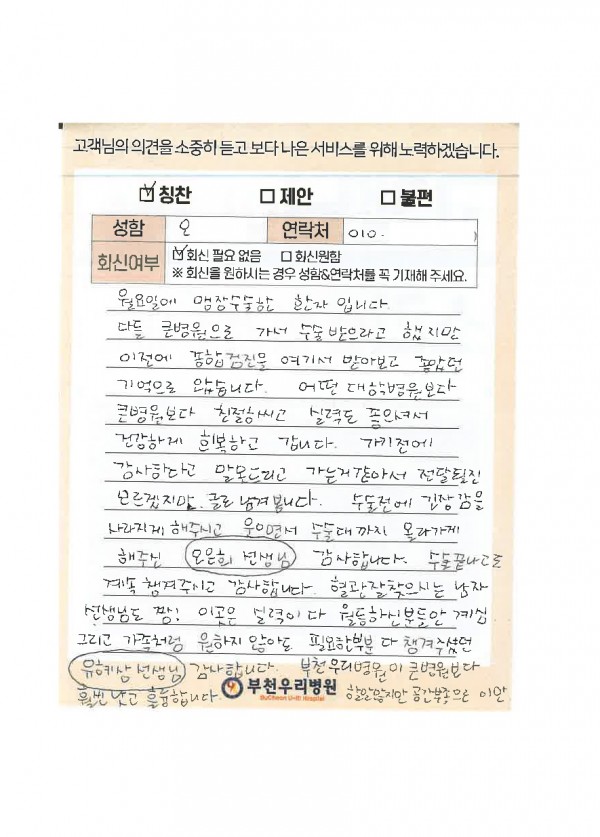 고객님의 의견을 소중히 듣고 보다 나은 서비스를 위해 노력하겠습니다.
☑ 칭찬 ☐ 제안 ☐ 불편
성함 오 연락처 010- )
회신여부 ☑ 회신 필요 없음 ☐ 회신원함
※ 회신을 원하시는 경우 성함&연락처를 꼭 기재해 주세요.
월요일에 맹장수술한 환자 입니다.
다들 큰병원으로 가서 수술 받으라고 했지만
이전에 종합검진을 여기서 받아보고 좋았던
기억으로 왔습니다. 어떤 대학병원보다
큰병원보다 친절하시고 실력도 좋안셔서
건강하게 회복하고 갑니다. 가기전에
감사하다고 말못드리고 가는거같아서 전달될진
모르겠지만. 글로 남겨봅니다. 수술전에 긴장감을
사라지게 해주시고 웃으면서 수술대까지 올라가게
해주신 오은희 선생님 감사합니다. 수술끝나고도
계속 챙겨주시고 감사합니다. 혈관잘찾으시는 남자
선생님도 짱! 이곳은 실력이 다 월등하신분들만 계심
그리고 가족처럼 원하지 않아도 필요한부분 다 챙겨주셨던
선생님 감사합니다. 부천우리병원이 큰병원보다
훨씬 낫고 훌륭합니다. 할말많지만 공간부족으로 이만
부천우리병원
BuCheon U-Ri Hospital